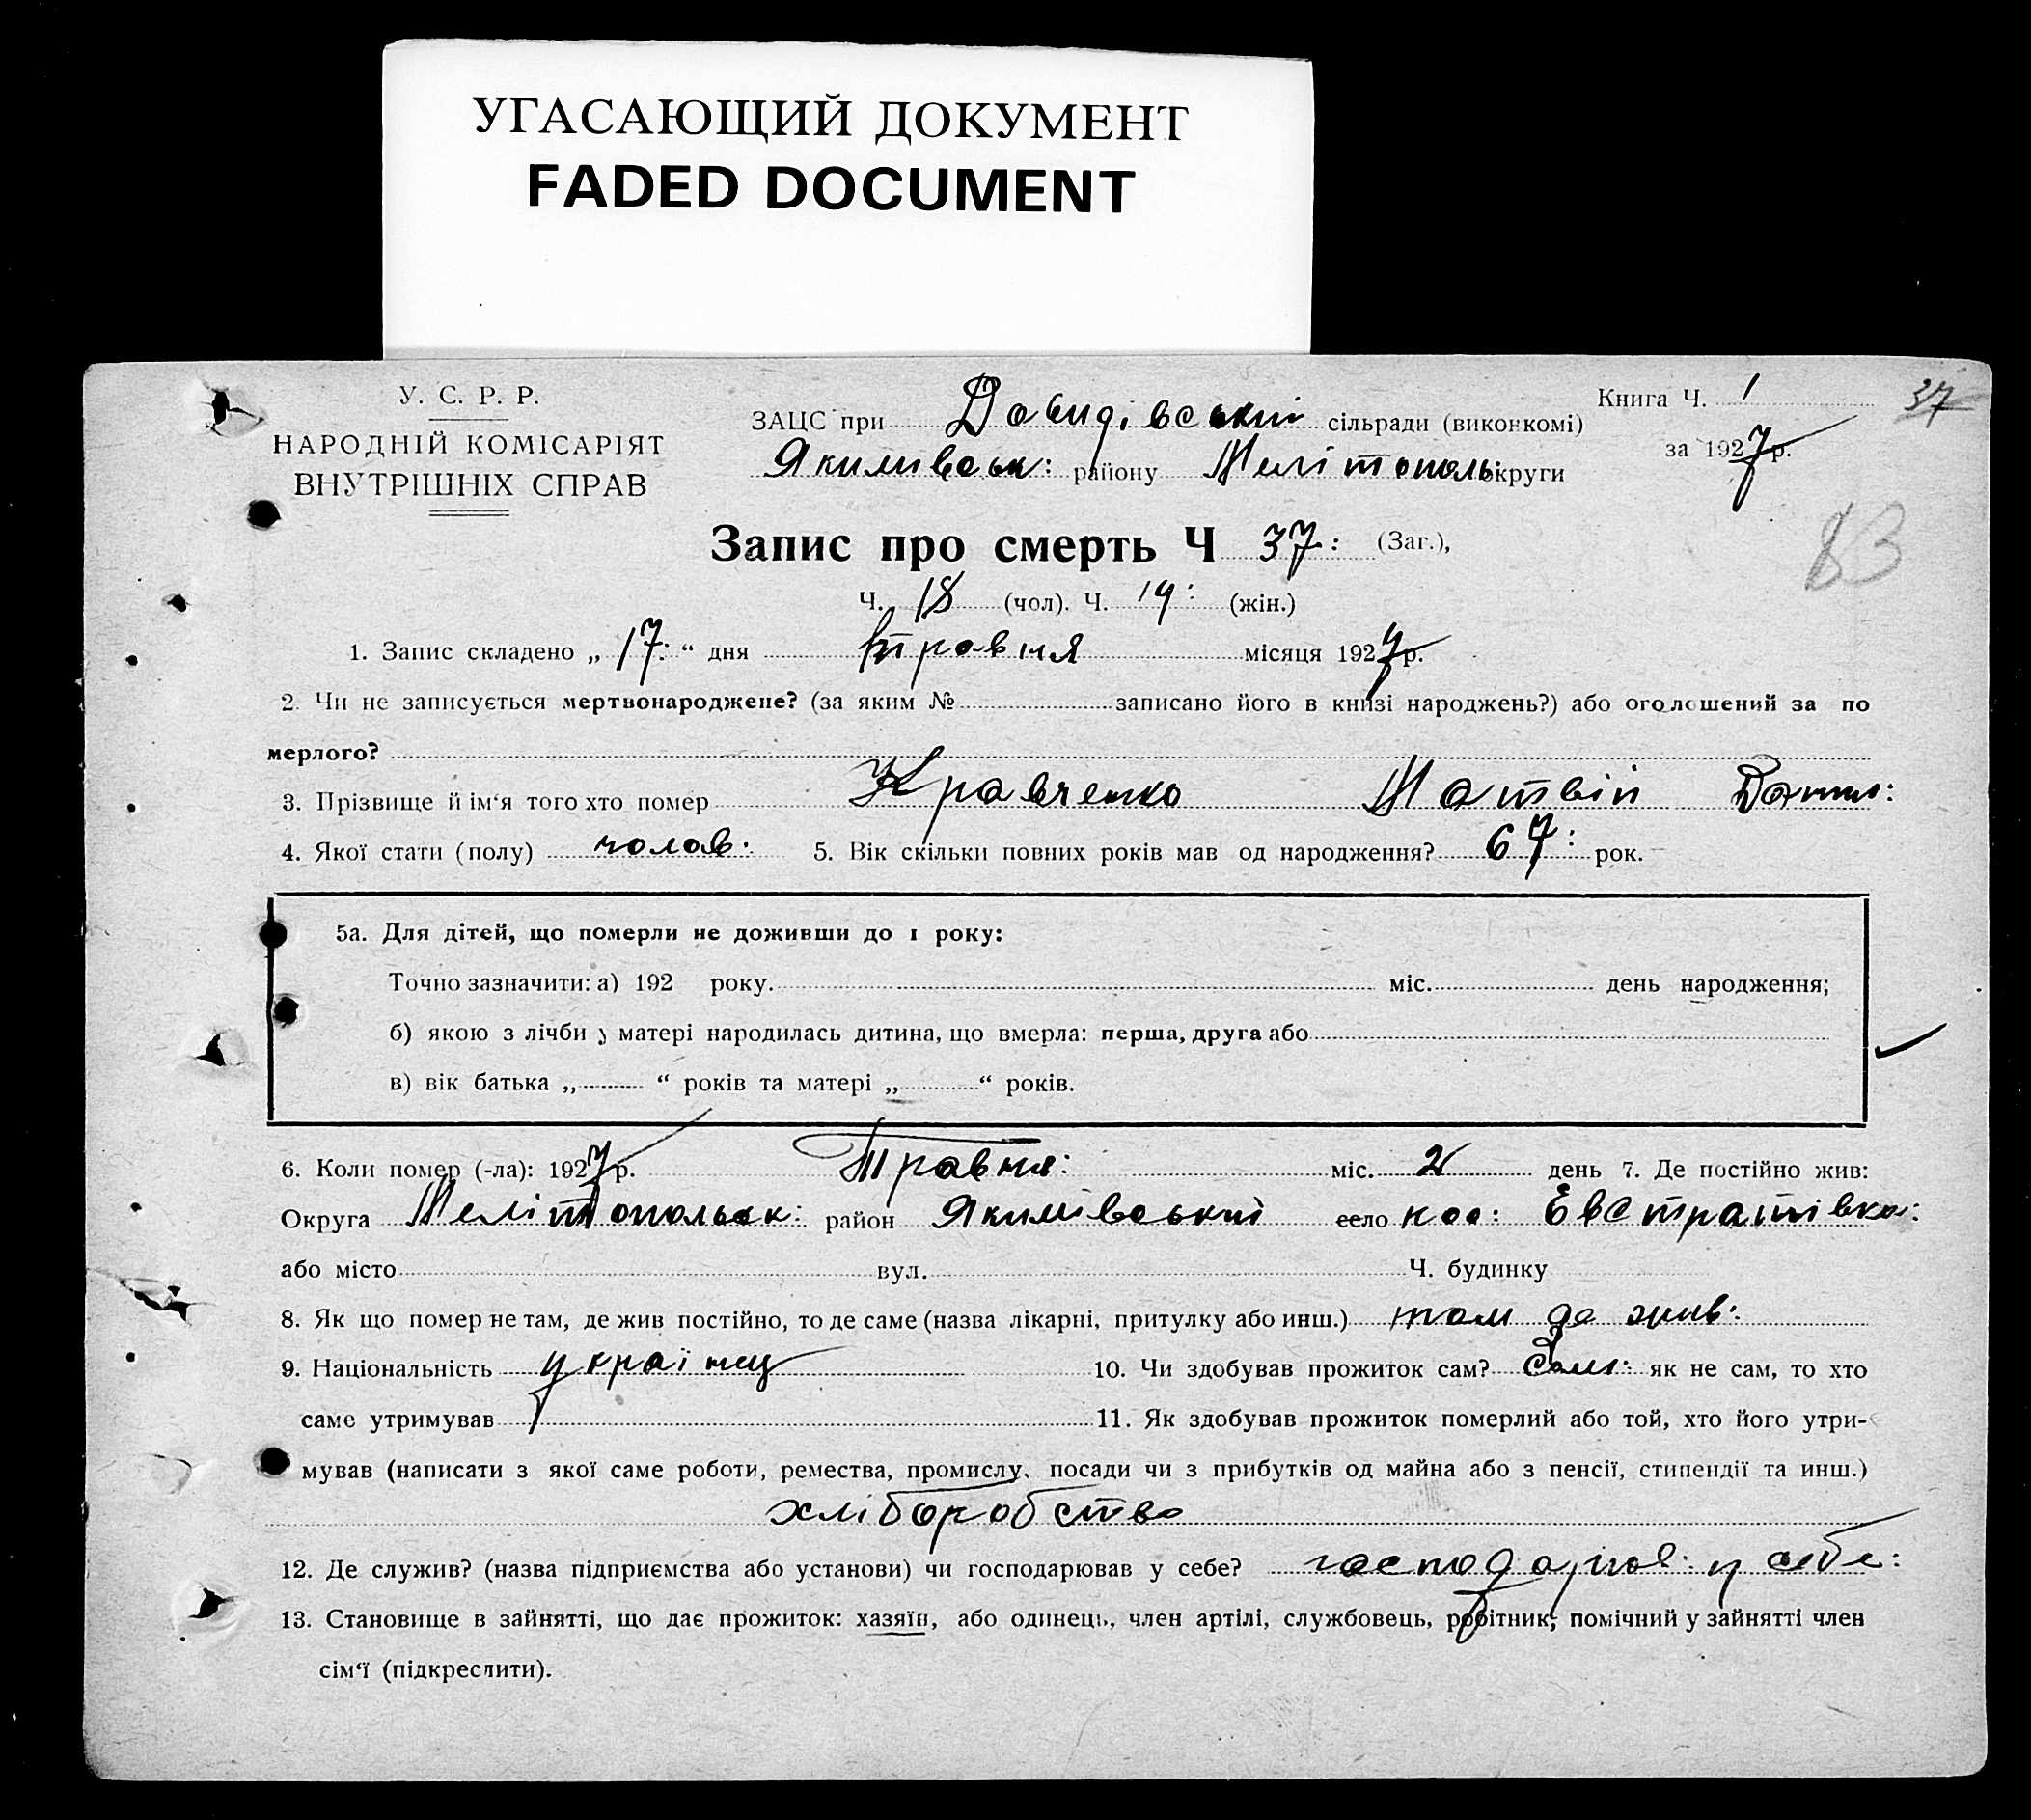 УГАСАЮЩИЙ ДОКУМЕНТ
FADED DOCUMENT
У. С. Р. Р.
НАРОДНІЙ КОМІСАРІЯТ
ВНУТРІШНІХ СПРАВ
ЗАЦС при Давидівський сільради (виконкомі)
Якимівськ: району Мелітополь: округи
Книга Ч. 1
37
за 1927 р.
83
Запис про смерть Ч 37: (Заг.),
Ч. 18 (чол). Ч. 19: (жін.)
1. Запис складено „ 17: “ дня травня місяця 1927 р.
2. Чи не записується мертвонароджене? (за яким № записано його в книзі народжень?) або оголошений за по
мерлого?
3. Прізвище й ім‘я того хто помер Кравченко Матвій Данил:
4. Якої стати (полу) чолов: 5. Вік скільки повних років мав од народження? 67: рок.
5а. Для дітей, що померли не доживши до 1 року:
Точно зазначити: а) 192 року. міс. день народження;
б) якою з лічби у матері народилась дитина, що вмерла: перша, друга або
в) вік батька „ “ років та матері „ “ років.
6. Коли помер (-ла): 1927 р. Травня: міс. 2 день 7. Де постійно жив:
Округа Мелітопольськ: район Якимівський село пос: Евстратівка:
або місто вул. Ч. будинку
8. Як що помер не там, де жив постійно, то де саме (назва лікарні, притулку або инш.) там де жив:
9. Національність українец 10. Чи здобував прожиток сам? Сам: як не сам, то хто
саме утримував 11. Як здобував прожиток померлий або той, хто його утри-
мував (написати з якої саме роботи, ремества, промислу, посади чи з прибутків од майна або з пенсії, стипендії та инш.)
хліборобство
12. Де служив? (назва підприємства або установи) чи господарював у себе? господарюв: у себе:
13. Становище в зайнятті, що дає прожиток: хазяїн, або одинець, член артілі, службовець, робітник, помічний у зайнятті член
сім‘ї (підкреслити).